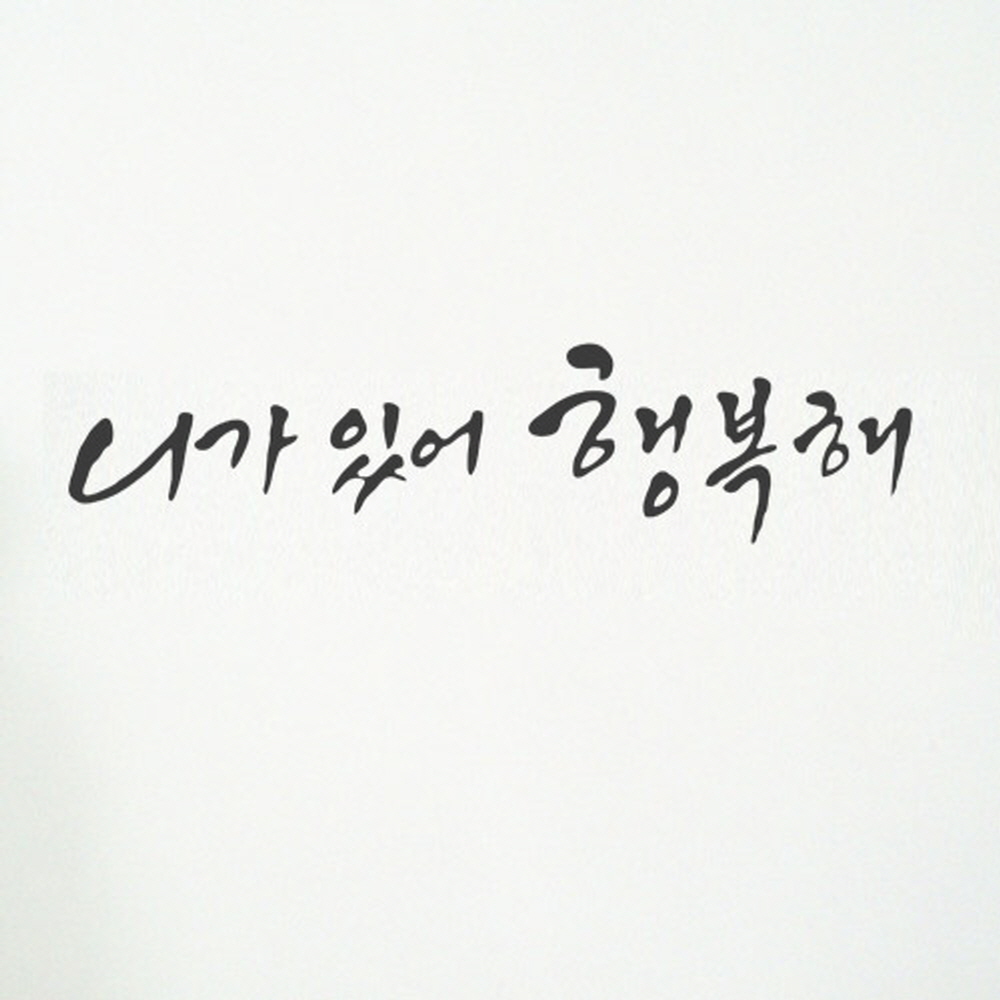 니가 있어 행복해